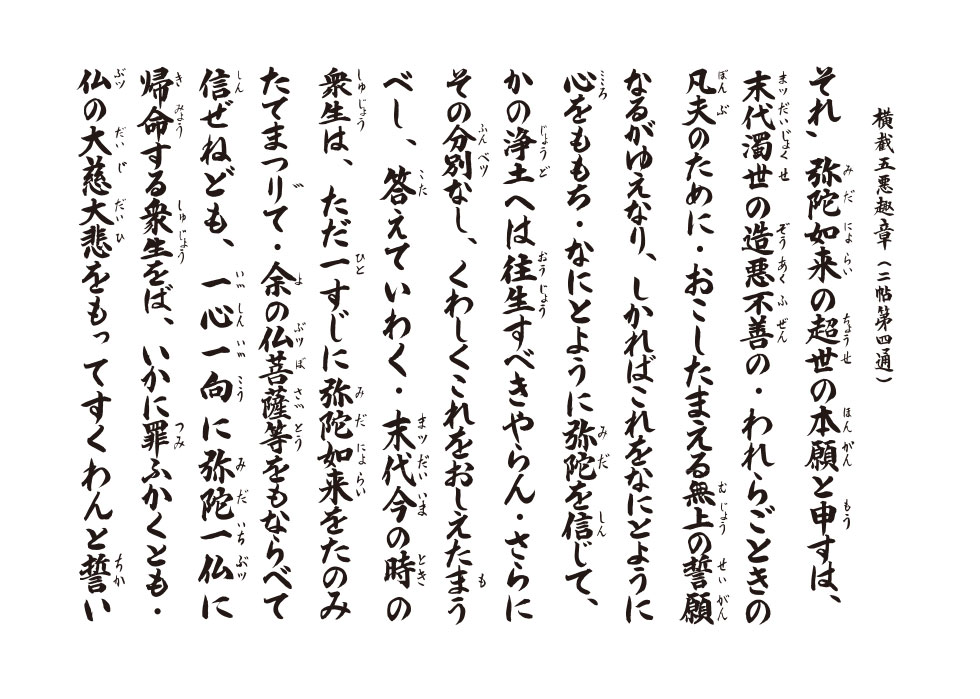 横截五悪趣章（二帖第四通）
それ、弥陀如来の超世の本願と申すは、
末代濁世の造悪不善の・われらごときの
凡夫のために・おこしたまえる無上の誓願
なるがゆえなり、しかればこれをなにとように
心をももち・なにとように弥陀を信じて、
かの浄土へは往生すべきやらん・さらに
その分別なし、くわしくこれをおしえたまう
べし、答えていわく・末代今の時の
衆生は、ただ一すじに弥陀如来をたのみ
たてまつりて・余の仏菩薩等をもならべて
信ぜねども、一心一向に弥陀一仏に
帰命する衆生をば、いかに罪ふかくとも・
仏の大慈大悲をもってすくわんと誓い